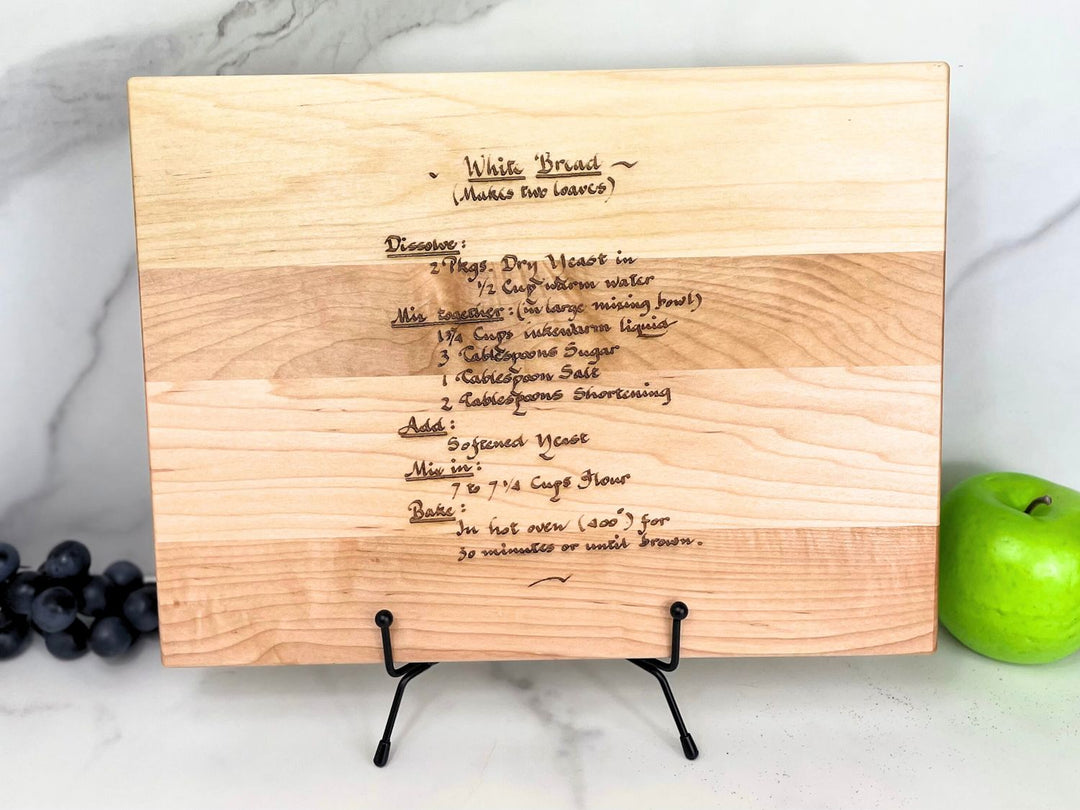 ~ White Bread ~
(Makes two loaves)
Dissolve:
2 Pkgs. Dry Yeast in
1/2 Cup warm water
Mix together: (in large mixing bowl)
1 3/4 Cups lukewarm liquid
3 Tablespoons Sugar
1 Tablespoon Salt
2 Tablespoons Shortening
Add:
Softened Yeast
Mix in:
7 to 7 1/4 Cups Flour
Bake:
In hot oven (400°) for
30 minutes or until brown.